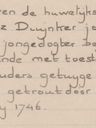 ren de huwelyks
z Duynker jo
jongedogter be
inde met toest
ouders getuyge
getrout door
y 1746.